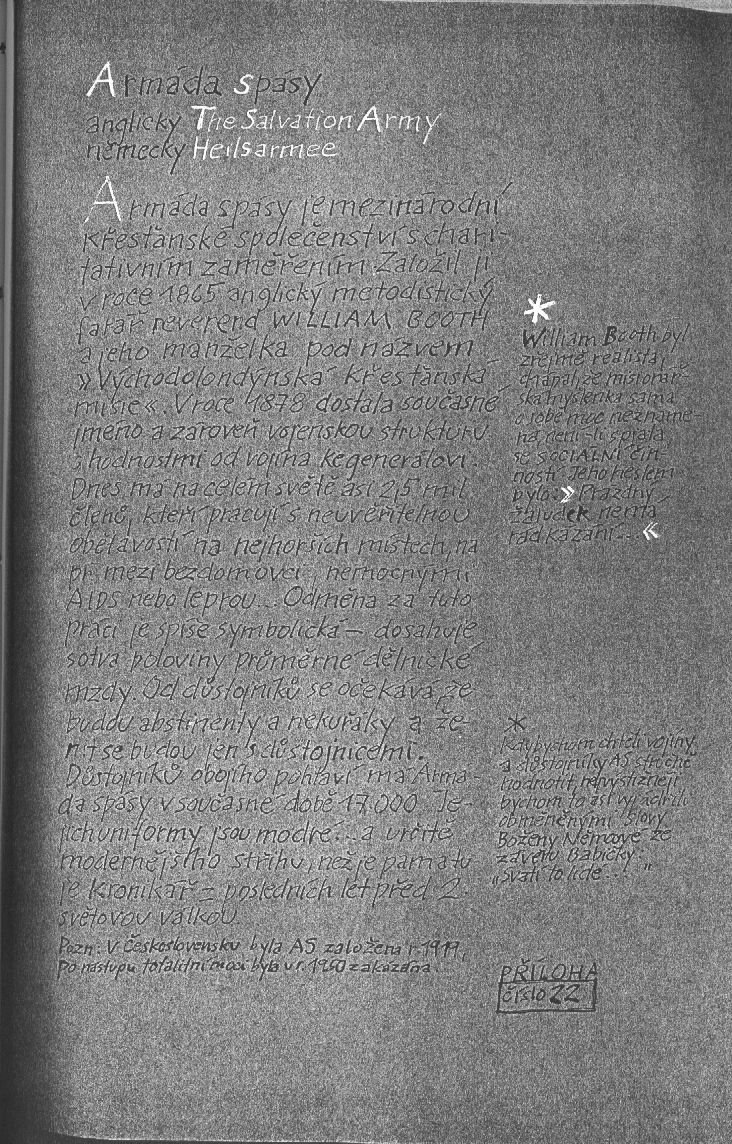 Armáda spásy
anglicky The Salvation Army
německy Heilsarmee
Armáda spásy je mezinárodní
křesťanské společenství s chari-
tativním zaměřením. Založil ji
v roce 1865 anglický metodistický
farář reverend WILLIAM BOOTH
a jeho manželka pod názvem
»Východolondýnská křesťanská
misie«. V roce 1878 dostala současné
jméno a zároveň vojenskou strukturu
s hodnostmi od vojína ke generálovi.
Dnes má na celém světě asi 2,5 mil
členů, kteří pracují s neuvěřitelnou
obětavostí na nejhorších místech, na
př. mezi bezdomovci, nemocnými
AIDS nebo leprou... Odměna za tuto
práci je spíše symbolická – dosahuje
sotva poloviny průměrné dělnické
mzdy. Od důstojníků se očekává, že
budou abstinenty a nekuřáky a že-
nit se budou jen s důstojnicemi.
Důstojníků obojího pohlaví má Armá-
da spásy v současné době 17.000. Je-
jich uniformy jsou modré... a určitě
modernějšího střihu, než je pamatu
je kronikář z posledních let před 2.
světovou válkou.
Pozn: V Československu byla AS založena r. 1919,
po nástupu totalitní moci byla v r. 1950 zakázána.
*
William Booth byl
zřejmě realista,
chápal, že misionář-
ská myšlenka sama
o sobě moc nezname-
ná není-li spjata
se SOCIÁLNÍ čin-
ností. Jeho heslem
bylo: »Prázdný
žaludek nemá
rád kázání.. «
*
Kdybychom chtěli vojíny
a důstojníky AS stručně
hodnotit, nejvýstižněji
bychom to asi vyjádřili
obměněnými slovy
Boženy Němcové ze
závěru Babičky:
„Svatí to lidé...!"
PŘÍLOHA
číslo 22